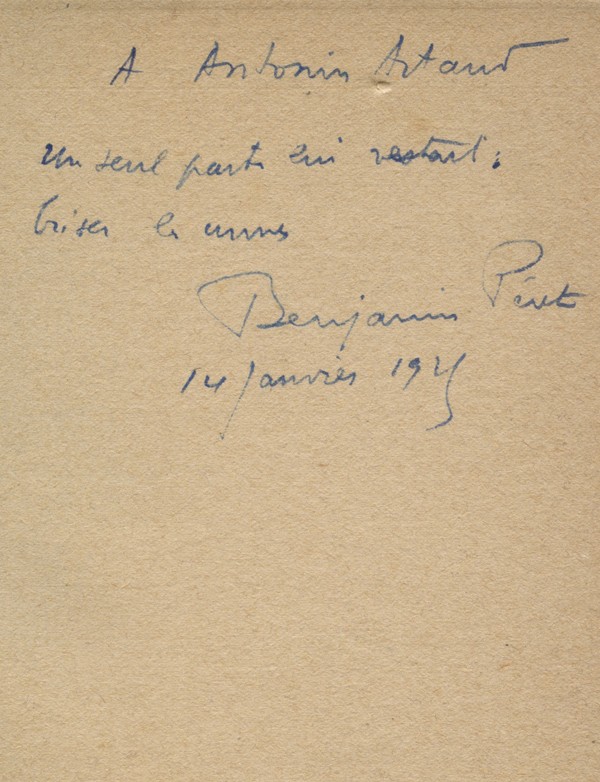 A Antonin Artaud
Un seul parti lui restait :
briser le
Benjamin Péret
14 Janvier 1925